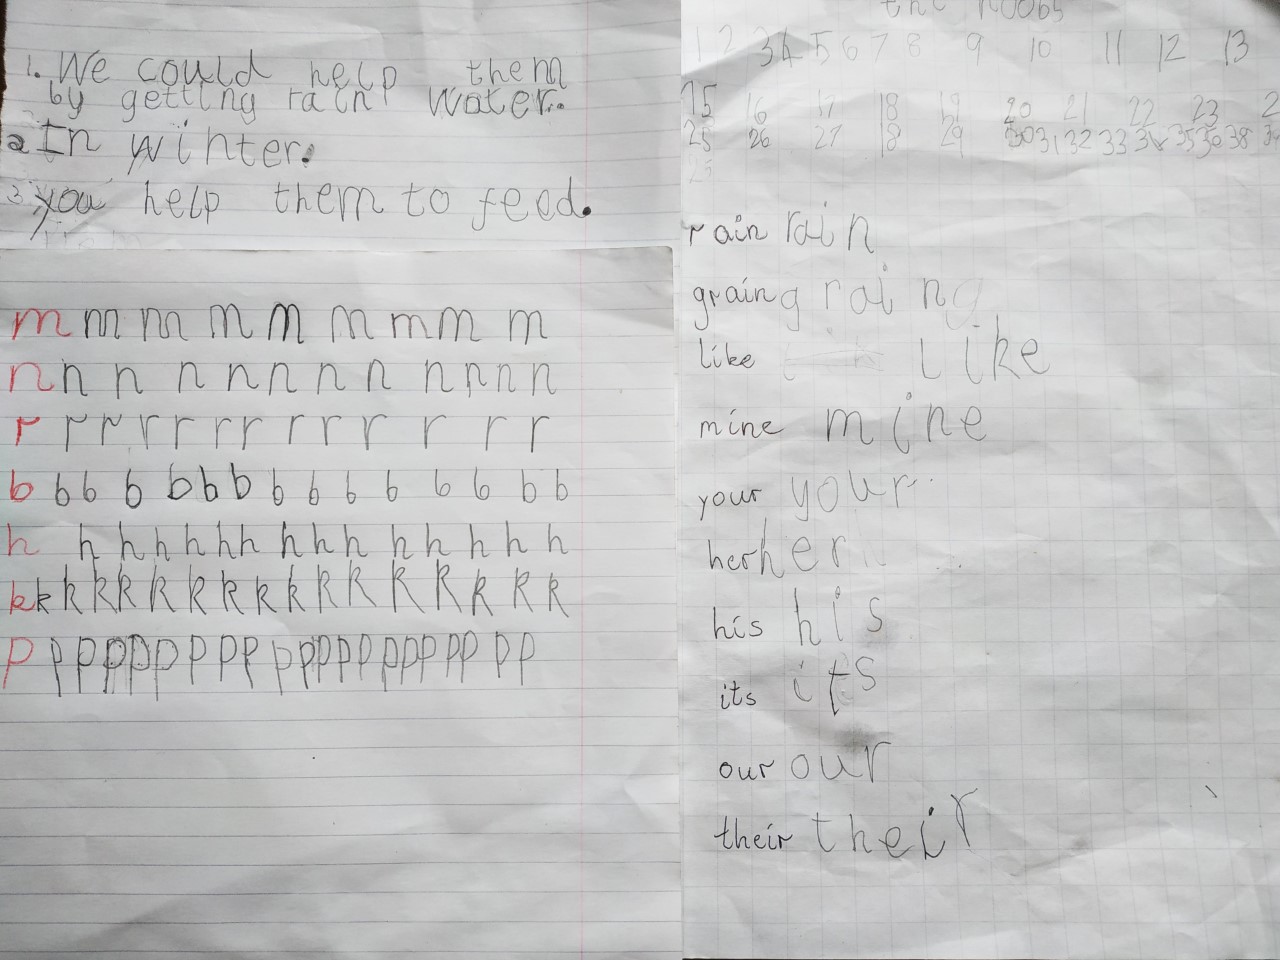 1. We could help them
by getting rain water.
2 In winter.
3 you help them to feed.
m m m m m m m m m
n n n n n n n n n n n n
r r r r r r r r r r r r r
b b b b b b b b b b b b b b b
h h h h h h h h h h h h h h
k k k k k k k k k k k k k k k k k
p p p p p p p p p p p p p p p p p p p p p
the noobs
1 2 3 4 5 6 7 8 9 10 11 12 13
15 16 17 18 19 20 21 22 23 2
25 26 27 18 29 30 31 32 33 34 35 36 38
25
rain rain
grain grain g
like like
mine mine
your your
her her
his his
its its
our our
their their